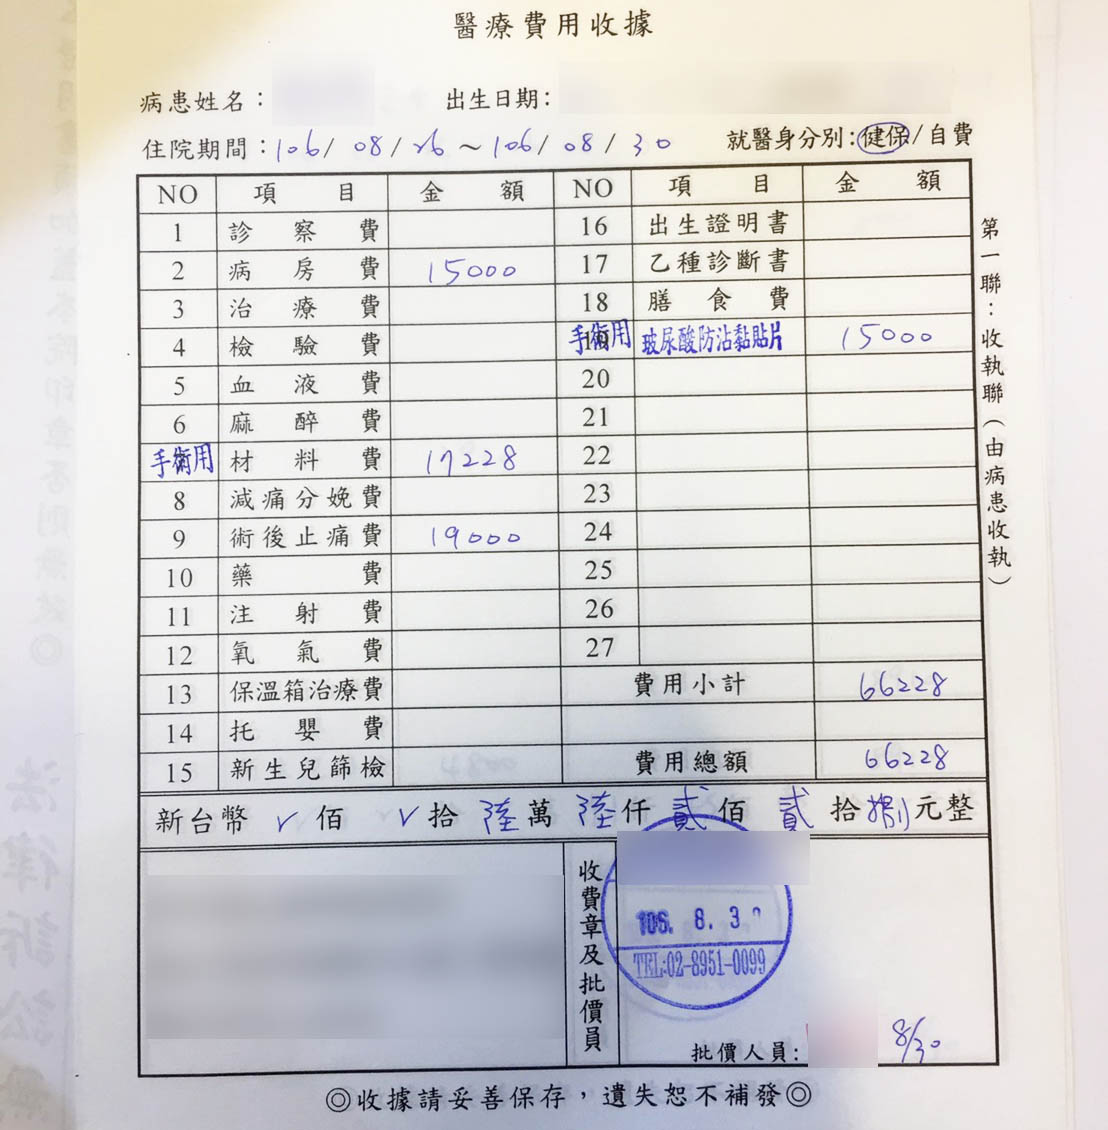 醫療費用收據
病患姓名： 出生日期：
住院期間：106/08/26～106/08/30 就醫身分別：健保/自費
NO 項目 金額 NO 項目 金額
1 診察費 16 出生證明書
2 病房費 15000 17 乙種診斷書
3 治療費 18 膳食費
4 檢驗費 手術用 玻尿酸防沾黏貼片 15000
5 血液費 20
6 麻醉費 21
手術用 材料費 17228 22
8 減痛分娩費 23
9 術後止痛費 19000 24
10 藥費 25
11 注射費 26
12 氧氣費 27
13 保溫箱治療費 費用小計 66228
14 托嬰費
15 新生兒篩檢 費用總額 66228
新台幣 ✓ 佰 ✓ 拾 陸 萬 陸 仟 貳 佰 貳 拾 捌 元整
收費章及批價員
106. 8. 30
TEL:02-8951-0099
批價人員： 8/30
第一聯：收執聯（由病患收執）
◎收據請妥善保存，遺失恕不補發◎